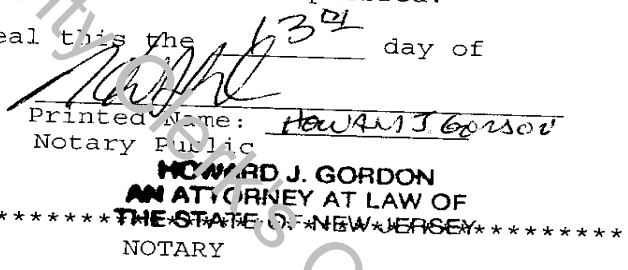 eal this the 13th day of
Printed Name: HOWARD J GORDON
Notary Public
HOWARD J. GORDON
AN ATTORNEY AT LAW OF
*******THE STATE OF NEW JERSEY**********
NOTARY
ity Clerk's O